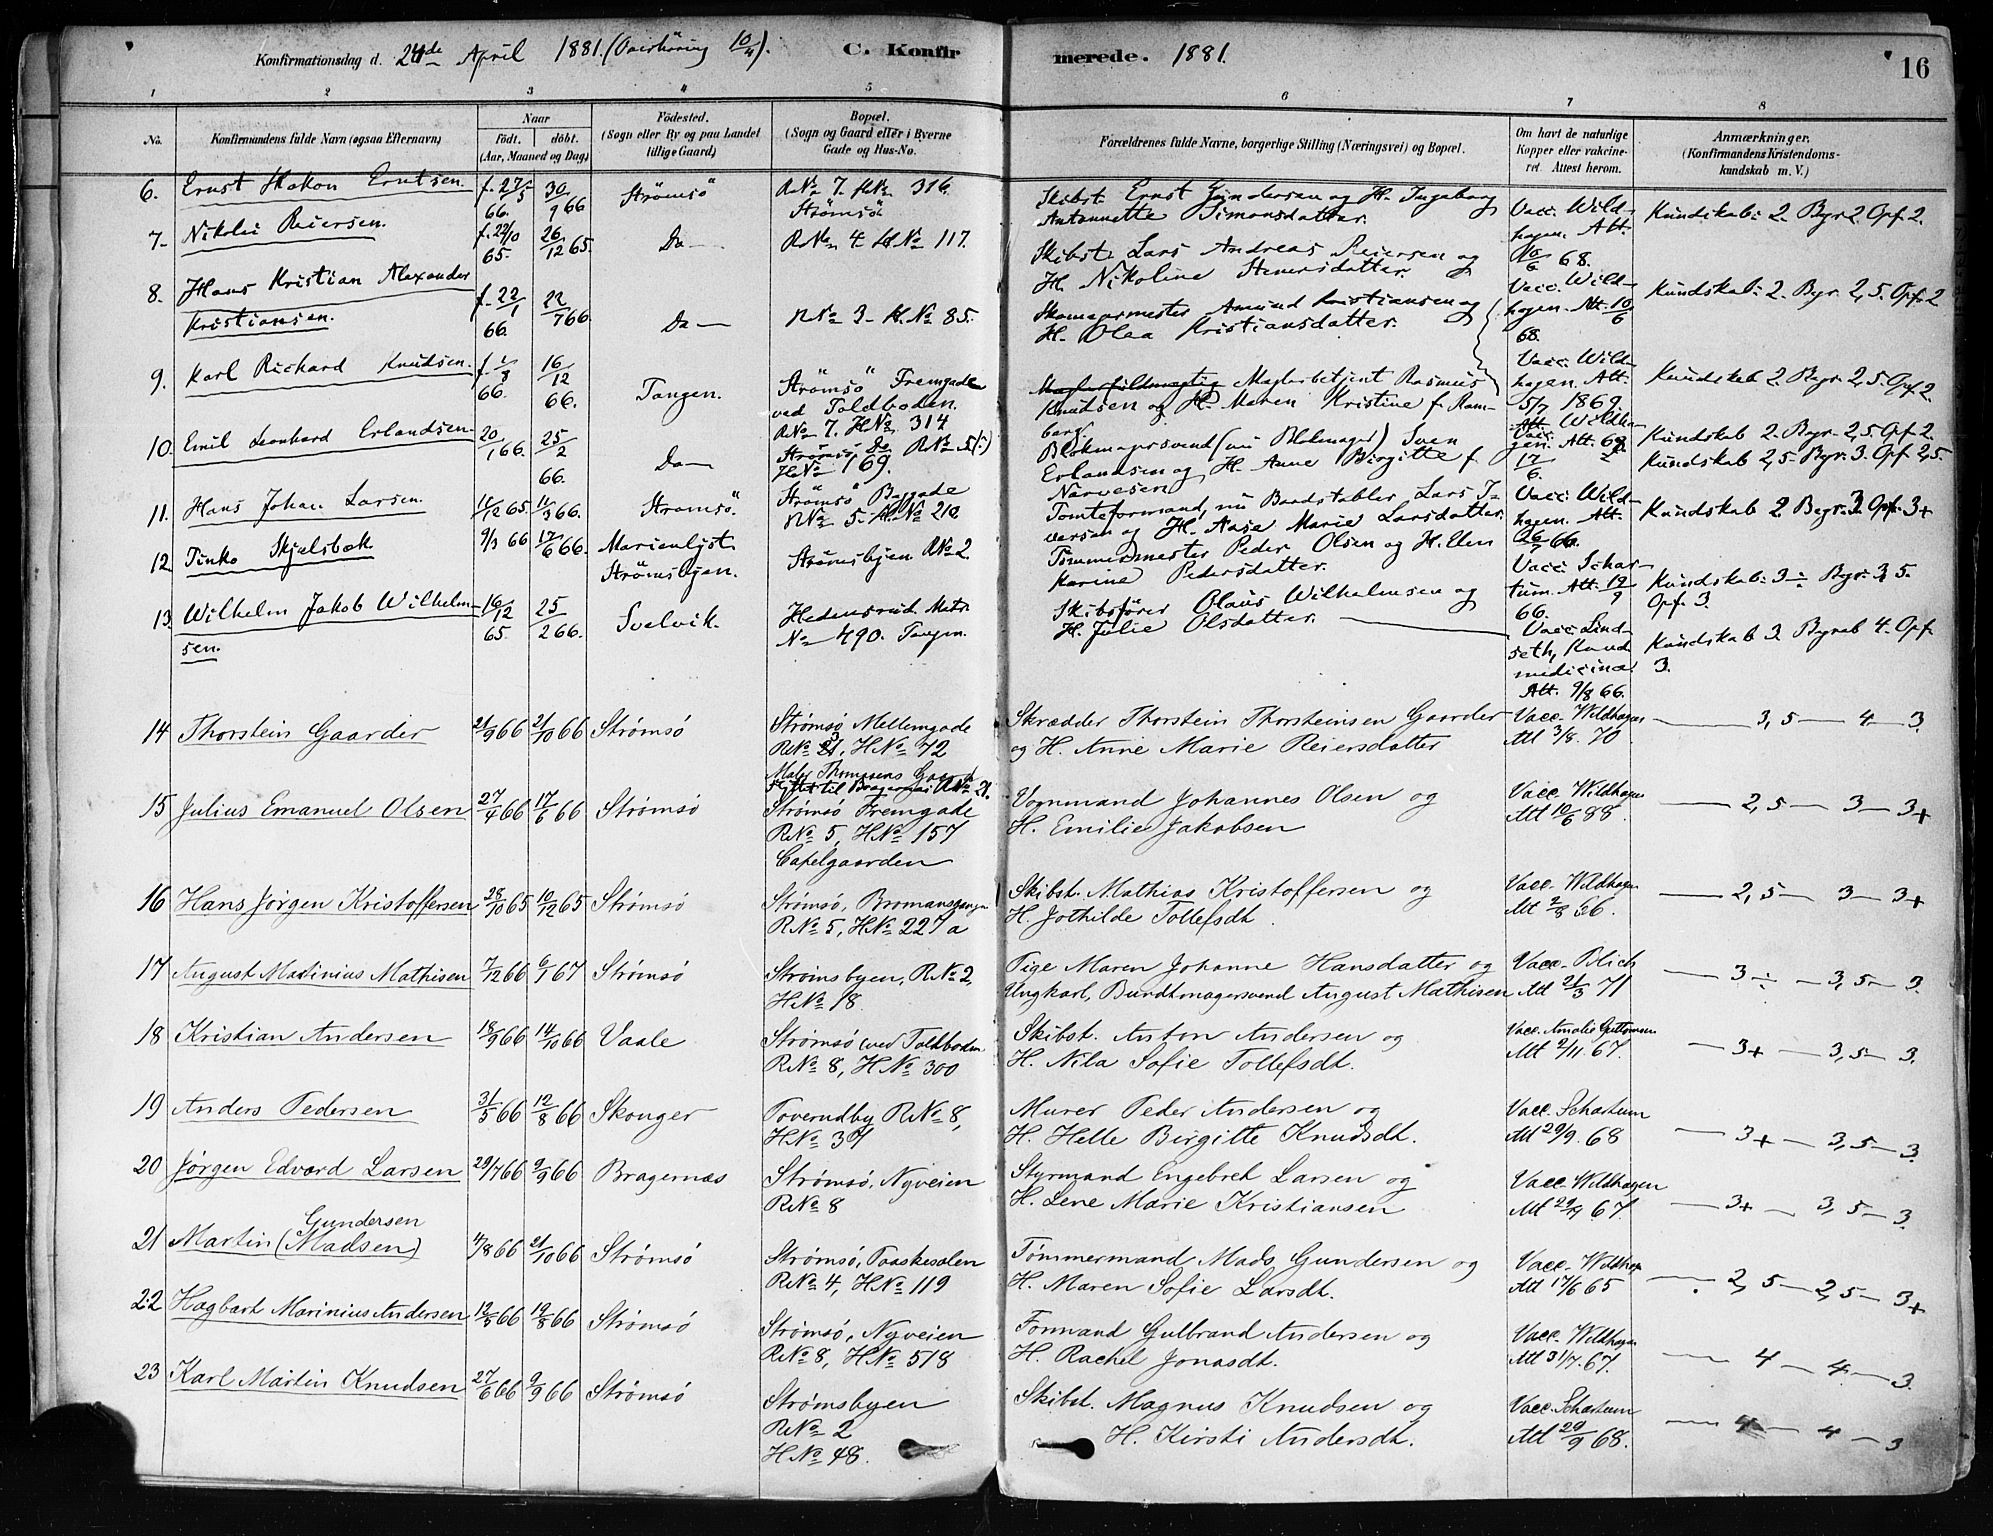 Konfirmationsdag d. 24de April 1881. (Overhöring 10/4). C. Konfirmerede. 1881. 16
1 2 3 4 5 6 7 8
No. Konfirmandens fulde Navn (ogsaa Efternavn) Naar födt. döbt. (Aar, Maaned og Dag) Födested. (Sogn eller By og paa Landet tillige Gaard) Bopæl. (Sogn og Gaard eller i Byerne Gade og Hus-No. Forældrenes fulde Navne, borgerlige Stilling (Næringsvei) og Bopæl. Om havt de naturlige Kopper eller vakcineret. Attest herom. Anmærkninger. (Konfirmandens Kristendomskundskab m. V.)
6. Ernst Hakon Erntsen. f. 27/5 66. 30/9 66 Strömsö R.No 7. H.No 316. Strömsö Skibst. Ernst Gundersen og H. Ingeborg
Antonnette Simonsdatter. Vacc. Wildhagen. Att. 10/6 68. Kundskab: 2. Byr 2. Opf. 2.
7. Nikolai Reiersen. f. 22/10 65. 26/12 65. Do— R.No 4 H.No 117. Skibst. Lars Andreas Reiersen og
H. Nikoline Iversdatter. Vacc. Wildhagen. Att. 10/6 68. Kundskab: 2. Byr. 2,5. Opf. 2
8. Hans Kristian Alexander
Kristiansen. f. 22/1 66. 22/7 66. Do— R.No 3- H.No 85. Skomagermester Amund Kristiansen og
H. Olea Kristiansdatter.
9. Karl Richard Knudsen. f. 1/3 66. 16/12 66. Tangen. Strömsö Fremgade
ved Toldboden.
R.No 7. H.No 314 Maglarbetjent Rasmus
Knudsen og H. Maren Kristine f. Ramberg. Vacc. Wildhagen. Att. 5/7 1869 Kundskab 2. Byr. 2,5. Opf 2.
10. Emil Leonhard Erlandsen 20/1 66. 25/2 66. Do— Strömsö, Do R.No 5
H.No 169. Blokmagersvend (nu Blokmager) Sven
Erlandsen og H. Anne Birgitte f.
Narvesen Kundskab 2. Byr. 2,5. Opf. 2.
Kundskab 2,5. Byr. 3. Opf 2,5.
11. Hans Johan Larsen. 11/12 65 11/3 66. Stromsö. Strömsö Baggade
R.No 5- H.No 212 Tomteformand, nu Bordstabler Lars Iversen og H. Aase Marie Larsdatter. Vacc. Wildhagen. Att. Kundskab 2. Byr. 3 Opf. 3+
12 Tinko Skjelsbæk 9/3 66 17/6 66. Marienlyst
Strömsbyen. Strömsbyen R.No 2. Tömmermester Peder Olsen og H. Elen
Karine Pedersdatter. Vacc. Schartum. Att. 19/9 66. Kundskab: 3 ÷ Byr. 3,5.
Opf. 3.
13. Wilhelm Jakob Wilhelmsen. 16/12 65. 25/2 66. Svelvik. Hedensrud. Matr.
No 490. Tangen. Skibsförer Olaus Wilhelmsen og
H. Julie Olsdatter. Vacc. Lindseth, Kand. medicinæ. Att. 9/8 66. Kundskab 3 Byreb 4. Opf.
3.
14 Thorstein Gaarder 21/9 66 21/10 66 Strømsö Strømsø Mellemgade
R.No 3, H.No 72 Skrædder Thorstein Thorsteinsen Gaarder
og H. Anne Marie Reiersdatter Vacc. Wildhagen
Att 3/8. 70 — 3,5 — 4 — 3.
Maler Thomasens Gaard
Flyttet til Bragernæs R.No 21.
15 Julius Emanuel Olsen 27/4 66 17/6 66 Strømsö Strømsø Fremgade
R.No 5, H.No 157
Capelgaarden Vognmand Johannes Olsen og
H. Emilie Jakobsen Vacc. Wildhagen
Att 10/6 88 — 2,5 — 3 — 3+
16 Hans Jörgen Kristoffersen 28/10 65 10/12 65 Strømsö Strømsø, Bromansgangen
R.No 5, H.No 227 a Skibst. Mathias Kristoffersen og
H. Jothilde Tollefsdt. Vacc. Wildhagen
Att 2/8 66. — 2,5 — 3 — 3+
17 August Martinius Mathisen 7/12 66 6/1 67 Strømsø Strömsbyen, R.No 2,
H.No 18. Pige Maren Johanne Hansdatter og
Ungkarl, Bundtmagersvend August Mathisen Vacc. Blich
Att 21/3 71 — 3 ÷ — 3,5 — 3.
18 Kristian Andersen 18/9 66 14/10 66 Vaale Strømsø ved Toldboden
R.No 8, H.No 300 Skibst. Anton Andersen og
H. Nila Sofie Tollefsdt. Vacc. Amalie Guttormsen
Att 2/11. 67. — 3+ — 3,5 — 3.
19 Anders Pedersen 31/5 66 12/8 66 Skouger Toverudby R.No 8,
H.No 37 Murer Peder Andersen og
H. Helle Birgitte Knudsdt. Vacc. Schartum
Att 29/9. 68 — 3+ — 3,5 — 3.
20 Jørgen Edvard Larsen 29/7 66 9/9 66 Bragernæs Strømsø, Nyveien
R.No 8 Styrmand Engebret Larsen og
H. Lene Marie Kristiansen Vacc. Wildhagen
Att 67. — 3+ — 3,5 — 3.
21 Martin (Madsen) Gundersen 4/8 66 21/10 66 Strømsö Strømsø, Paaskesalen
R.No 4, H.No 119 Tømmermand Mads Gundersen og
H. Maren Sofie Larsdt. Vacc. Wildhagen
Att 17/6 65 — 2,5 — 2,5 — 3+
22 Hagbart Marinius Andersen 12/5 66 19/8 66 Strømsö Strømsø, Nyveien
R.No 8, H.No 518 Formand Gulbrand Andersen og
H. Rachel Jonasdt. Vacc. Wildhagen
Att 31/7. 67. — 4 — 4 — 3.
23 Karl Martin Knudsen 27/6 66 9/9 66 Strømsö Strømsbyen
R.No 2
H.No 48. Skibst. Magnus Knudsen og
H. Kirsti Andersdt. Vacc. Schartum
Att 29/9 68. — 4 — 4 — 3